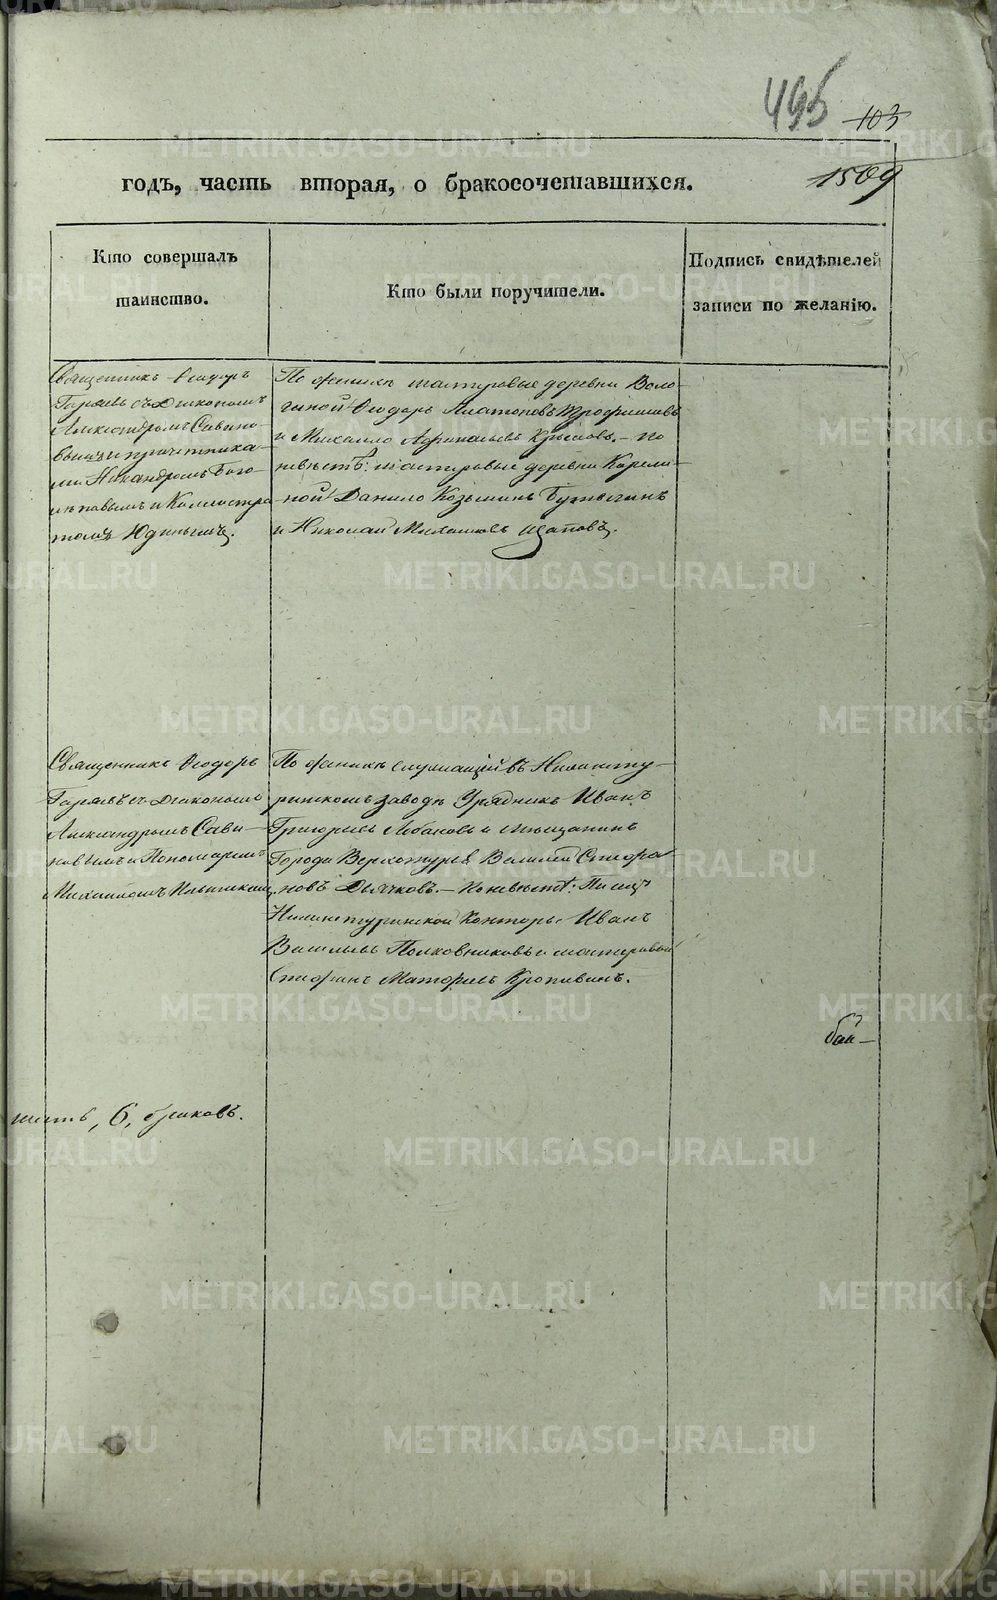 495 103
1509
годъ, часть вторая, о бракосочетавшихся.
Кто совершалъ
таинство.
Кто были поручители.
Подпись свидѣтелей
записи по желанію.
Священникъ Ѳеодоръ
Гаряевъ съ Діакономъ
Александромъ Савино-
вымъ и причетника-
ми Никандромъ Бого-
и Каллистра
томъ Юдинымъ.
По женихѣ мастеровые деревни Воло-
гиной Ѳеодоръ Платоновъ Трофимовъ
и Михайло Афанасьевъ Крысовъ, – по
невѣстѣ: мастеровые деревни Карели-
ной Данило Козьминъ
и Николай
Священникъ Ѳеодоръ
Гаряевъ съ Діакономъ
Александромъ Сави-
новымъ и Пономаремъ
Михаиломъ
По женихѣ служащій въ Нижнету-
ринскомъ заводѣ Урядникъ Иванъ
Григорьевъ Лобановъ и мѣщанинъ
Города Верхотурья Василій Стефа
новъ Дьячковъ. – По невѣстѣ: Писецъ
Нижнетуринской Конторы Иванъ
Васильевъ Полковниковъ и мастеровой
Стефанъ Матфеевъ Кропивинъ.
шесть, 6, браковъ.